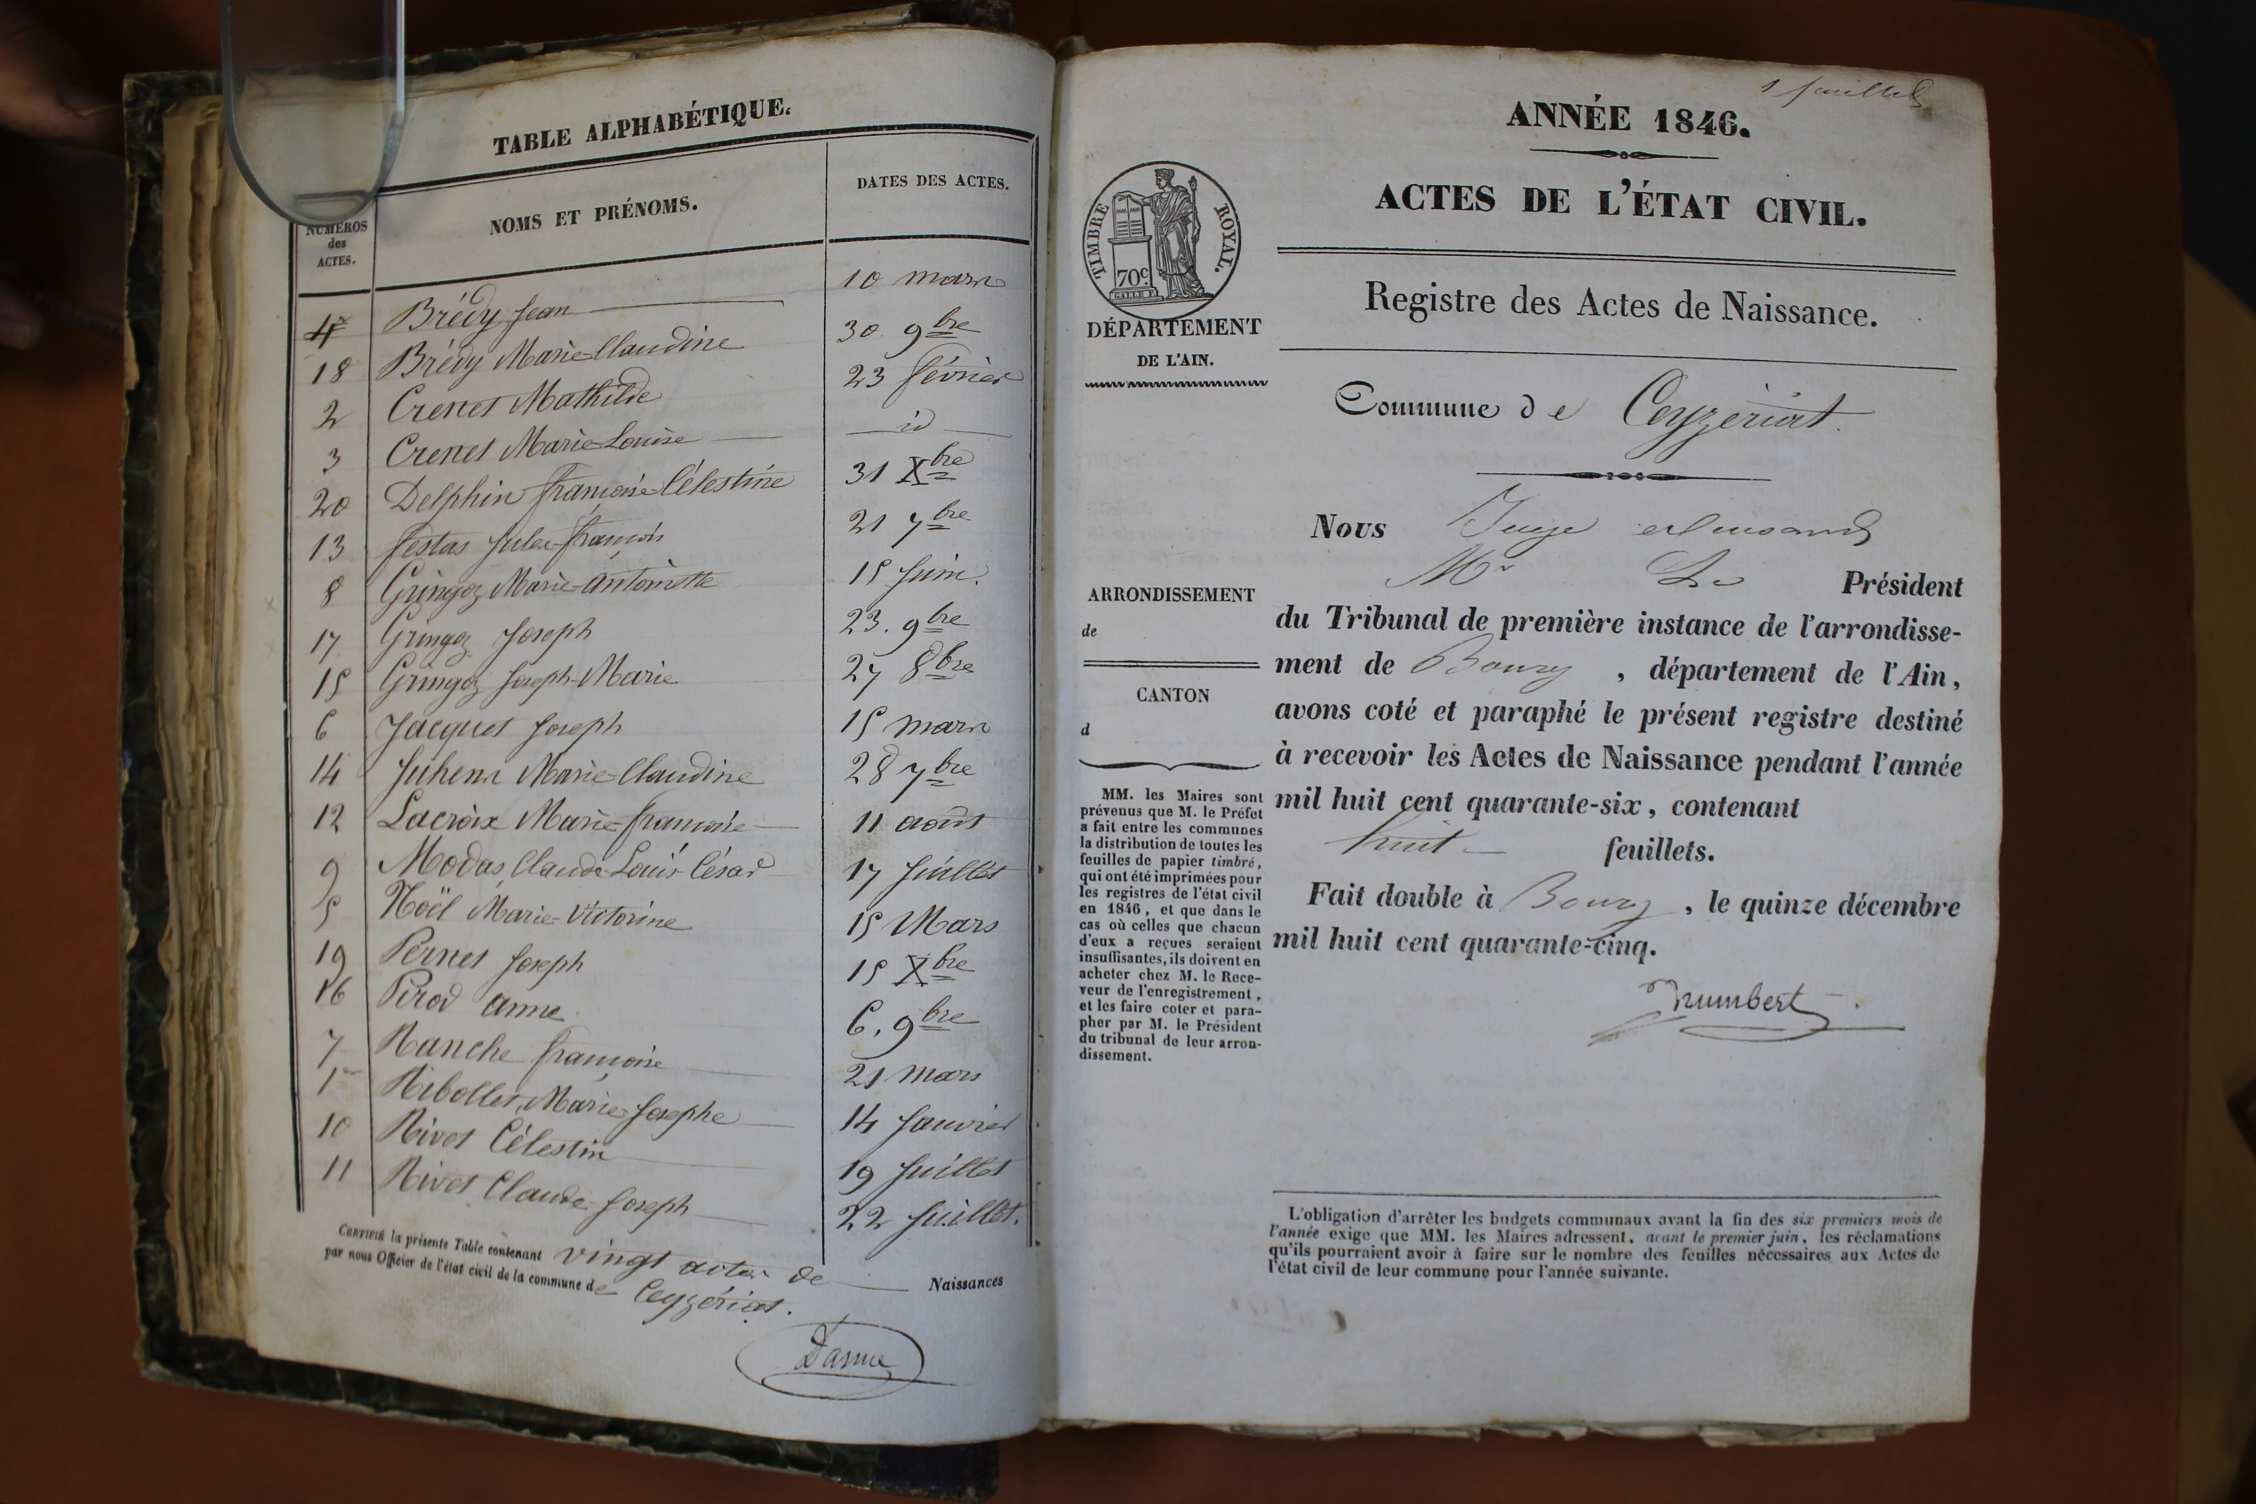 TABLE ALPHABÉTIQUE.
NUMÉROS des ACTES.
NOMS ET PRÉNOMS.
DATES DES ACTES.
4 Brédy Jean 10 mars
18 Brédy Marie-Claudine 30 9bre
2 Crenet Mathilde 23 février
3 Crenet Marie-Louise id
20 Delphin françoise Célestine 31 Xbre
13 festas Jules-françois 21 7bre
8 Gringoz Marie-antoinette 15 Juin.
17 Gringoz Joseph 23. 9bre
15 Gringoz Joseph-Marie 27 8bre
6 Jacquet Joseph 15 mars
14 Juhem Marie-Claudine 28 7bre
12 Lacroix Marie-françoise 11 août
9 Modas Claude-Louis-César 17 Juillet
5 Noël Marie-Victorine 15 Mars
19 Pernet Joseph 15 Xbre
16 Pirod anne 6. 9bre
7 Ranche françoise 21 mars
1 Ribollet, Marie-Josephe 14 Janvier
10 Rivet Célestin 19 Juillet
11 Rivet Claude-Joseph 22 Juillet.
CERTIFIÉ la présente Table contenant vingt actes de Naissances
par nous Officier de l'état civil de la commune de Ceyzériat.
Danne
1 feuillet
ANNÉE 1846.
ACTES DE L'ÉTAT CIVIL.
TIMBRE ROYAL.
70c
DÉPARTEMENT
DE L'AIN.
Registre des Actes de Naissance.
Commune de Ceyzériat.
Nous Juge
Mr Le Président
du Tribunal de première instance de l'arrondisse-
ment de Bourg, département de l'Ain,
avons coté et paraphé le présent registre destiné
à recevoir les Actes de Naissance pendant l'année
mil huit cent quarante-six, contenant
huit feuillets.
Fait double à Bourg, le quinze décembre
mil huit cent quarante-cinq.
ARRONDISSEMENT
de
CANTON
d
MM. les Maires sont
prévenus que M. le Préfet
a fait entre les communes
la distribution de toutes les
feuilles de papier timbré,
qui ont été imprimées pour
les registres de l'état civil
en 1846, et que dans le
cas où celles que chacun
d'eux a reçues seraient
insuffisantes, ils doivent en
acheter chez M. le Rece-
veur de l'enregistrement,
et les faire coter et para-
pher par M. le Président
du tribunal de leur arron-
dissement.
L'obligation d'arrêter les budgets communaux avant la fin des six premiers mois de
l'année exige que MM. les Maires adressent, avant le premier juin, les réclamations
qu'ils pourraient avoir à faire sur le nombre des feuilles nécessaires aux Actes de
l'état civil de leur commune pour l'année suivante.